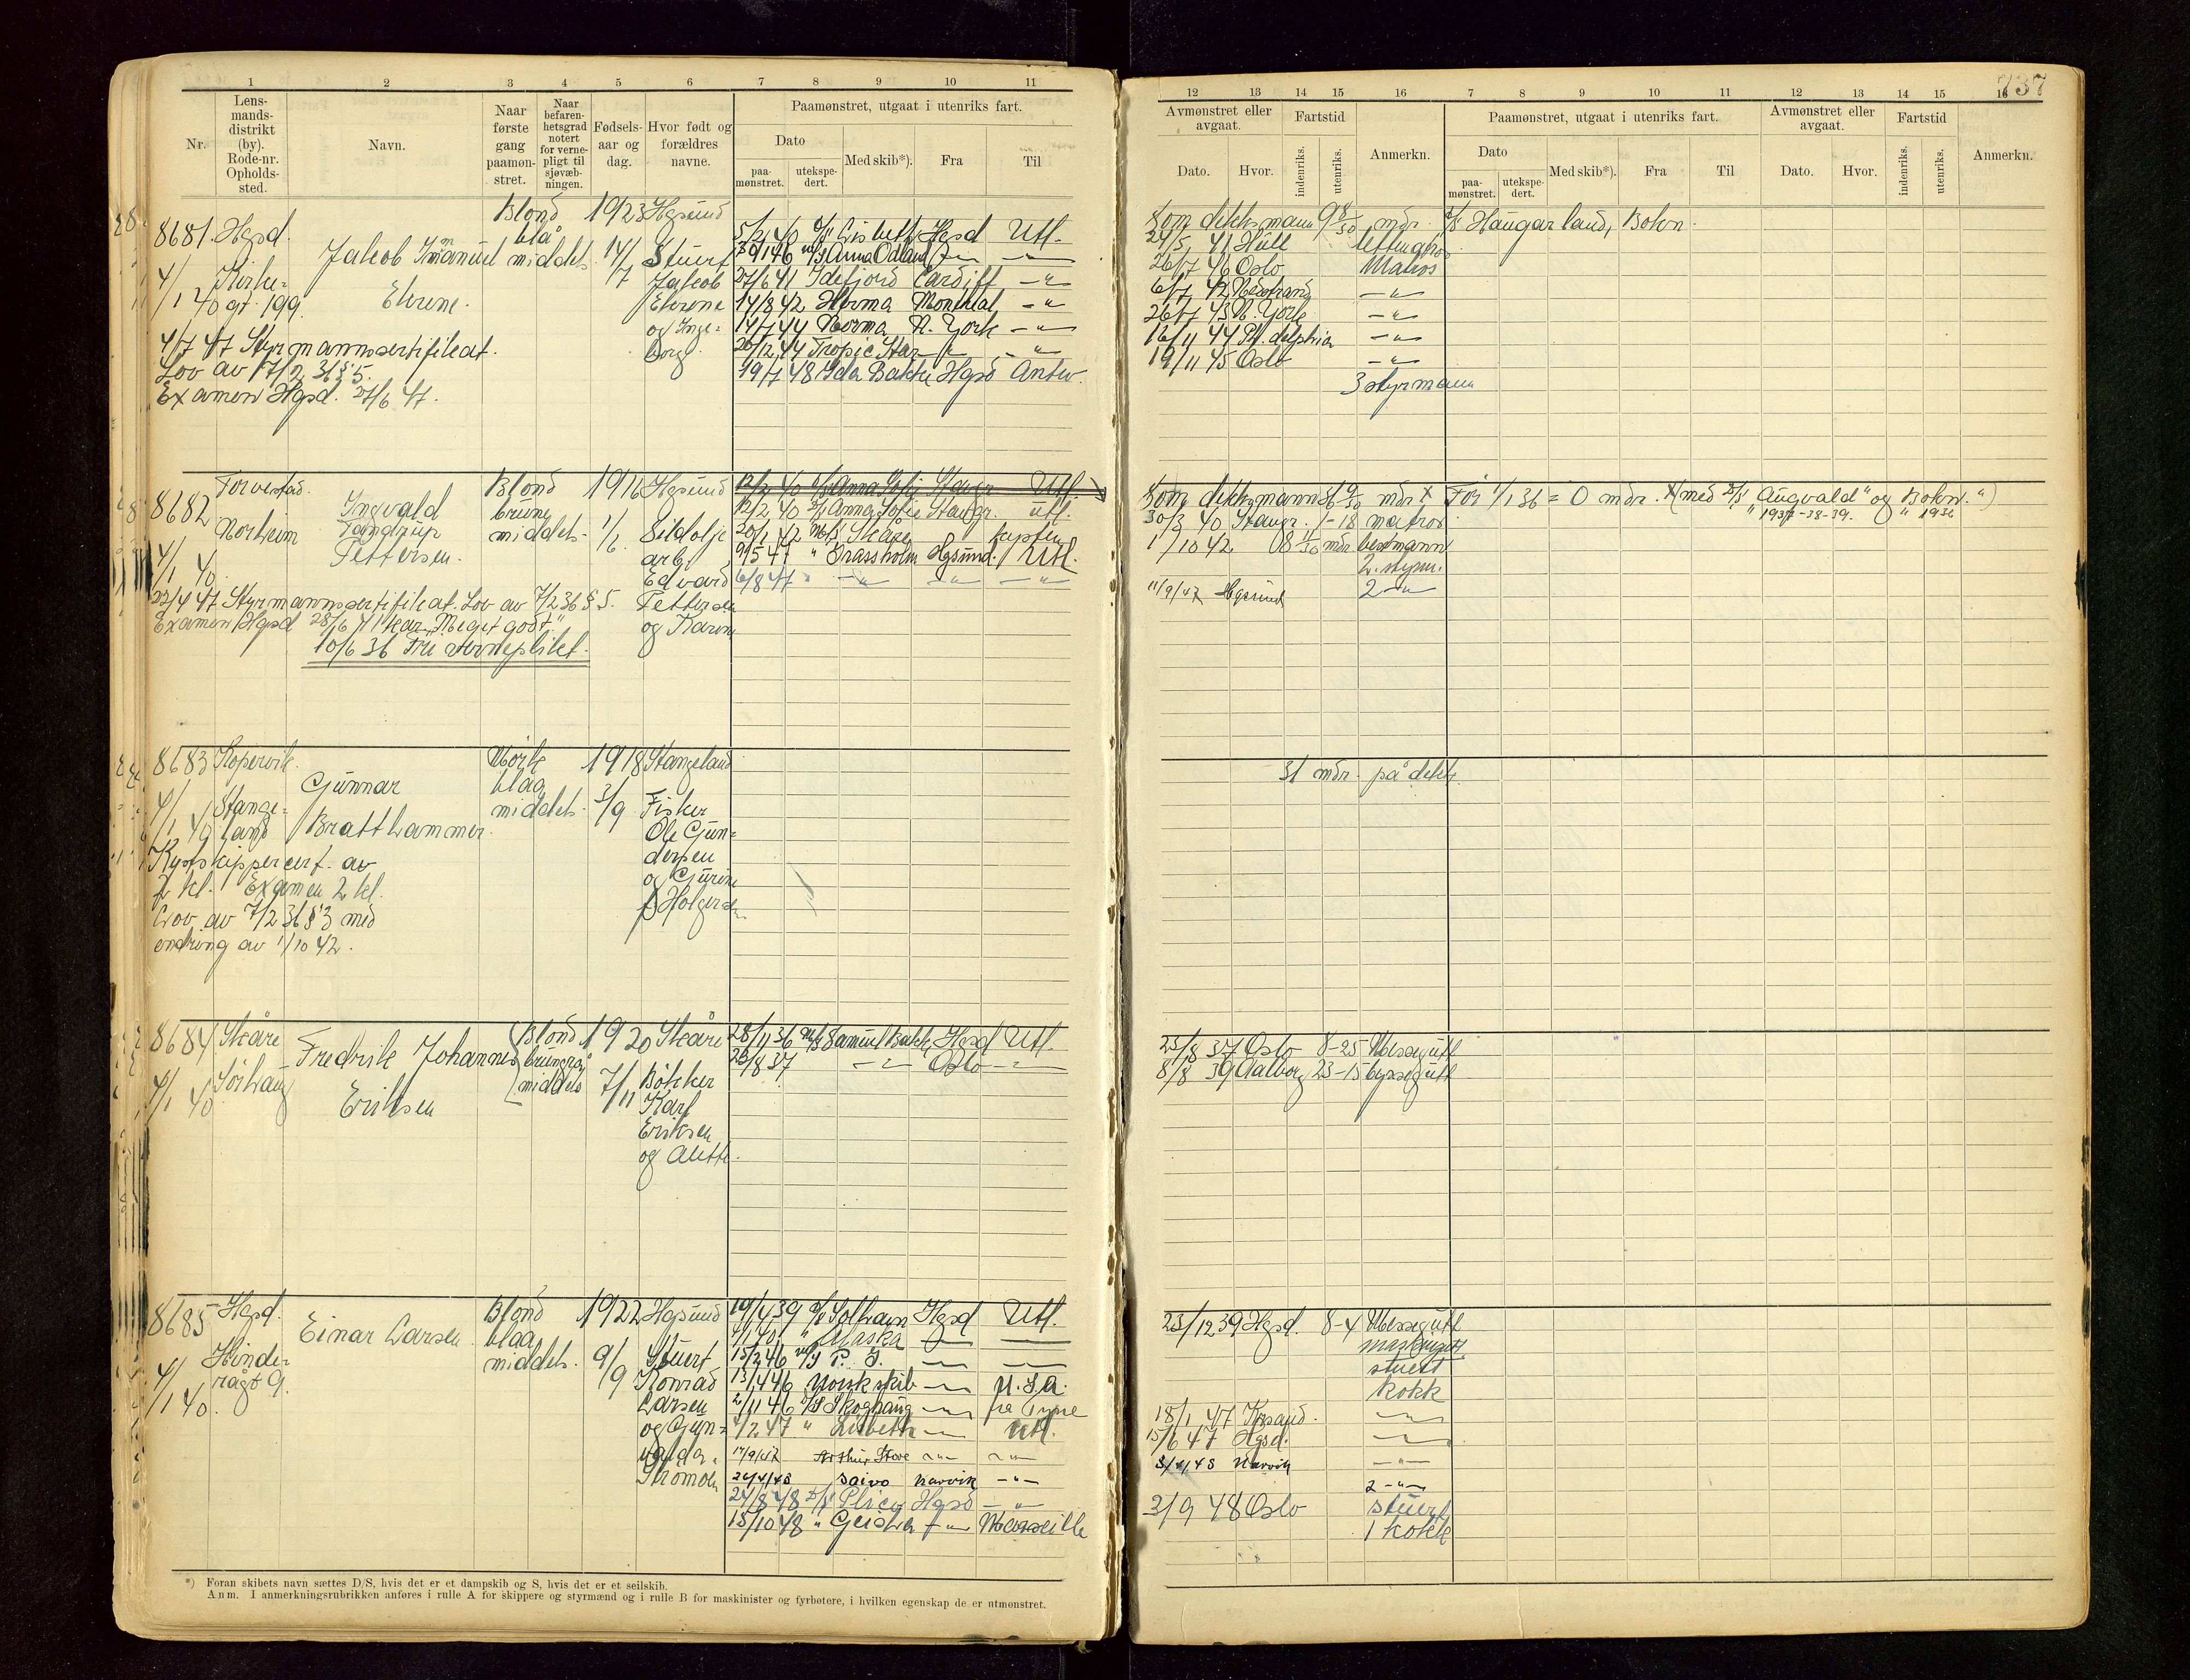 737
1 2 3 4 5 6 7 8 9 10 11
Nr.
Lens-
mands-
distrikt
(by).
Rode-nr.
Opholds-
sted.
Navn.
Naar
første
gang
paamøn-
stret.
Naar
befaren-
hetsgrad
notert
for verne-
pligt til
sjøvæb-
ningen.
Fødsels-
aar og
dag.
Hvor født og
forældres
navne.
Paamønstret, utgaat i utenriks fart.
Dato
paa-
mønstret.
utekspe-
dert.
Med skib*).
Fra
Til
12 13 14 15 16 7 8 9 10 11 12 13 14 15 16
Avmønstret eller
avgaat.
Dato.
Hvor.
Fartstid
indenriks.
utenriks.
Anmerkn.
Paamønstret, utgaat i utenriks fart.
Dato
paa-
mønstret.
utekspe-
dert.
Med skib*).
Fra
Til
Avmønstret eller
avgaat.
Dato.
Hvor.
Fartstid
indenriks.
utenriks.
Anmerkn.
8681 Hgsd.
4/1 40
Jakob Immanuel
Blond
blå
middels
1923
14/7
Hgsund
Stuert
Jakob
og Inge-
borg
5/2 40 D/S Lisbeth Hgsd Utl.
M/S Anna Odland
27/6 41 Idefjord Cardiff -"-
14/8 42 Herma Montreal -"-
14/7 44 Norma N. York -"-
20/12 44 Tropic Star -"- -"-
19/7 48 Ida Bakke Hgsd Antw.
4/7 47 Styrmannssertifikat.
Lov av 17/2 36 § 5.
Examen Hgsd. 27/6 47.
Som dekksmann 9 8/30 mdr. D/S Haugarland, Bokn.
24/5 41 Hull lettmatros
26/7 46 Oslo Matros
6/7 42 -"-
26/7 43 N. York -"-
16/11 44 -"-
19/11 45 Oslo -"-
3 styrmann
8682
Torvestad.
Norheim
4/1 40
Ingvald
Tandrup
Pettersen.
Blond
brune
middels
1916
1/6
Hgsund
Sildolje
arb.
Edvard
Pettersen
og Karen
12/2 40 D/S Anna Sofie Stavgr. Utl.
12/2 40 D/S Anna Sofie Stavgr. utl.
20/1 42 M/S Skåre kysten
9/5 47 " Grassholm Hgsund. Utl.
6/8 47 " -"- -"- -"-
22/4 47 Styrmannssertifikat. Lov av 7/2 36 § 5.
Examen Hgsd 28/6 41 kar. "Meget godt."
10/6 36 Fri verneplikt.
Før 1/1 36 = 0 mdr. x (med D/S "Augvald" og "Bokn.")
" 1937-38-39. " 1936
30/3 40 Stavgr. 1-18 matros
1/10 42 8 11/30 mdr bestmann
2. styrm.
11/9/47 Hgsund 2 -"-
8683 Kopervik.
Stange-
land
4/1 40
Gunnar
Bratthammer.
Mørk
blaa
middels
1918
3/9
Stangeland
Fisker
Ole Gun-
dersen
og Gurine
f. Holgersen
Kystskippercert. av
2 kl. Examen 2 kl.
Lov av 7/2 36 § 3 med
endring av 1/10 42.
31 mdr. på dekk.
8684 Skåre
Sørhaug
4/1 40
Fredrik Johannes
Eriksen
Blond
brungrå
middels
1920
7/11
Skåre
Bøkker
Karl
Eriksen
og Alette.
28/11 36 M/S Samuel Bakke Hgsd Utl.
23/8 37 -"- Oslo -"-
23/8 37 Oslo 8-25 Messegutt
8/8 39 Aalborg 23-15 byssegutt
8685 Hgsd.
Hinde-
rågt 9.
4/1 40.
Einar Larsen
Blond
blaa
middels.
1922
9/9
Hgsund
Stuert
Konrad
Larsen
og Gun-
valda
Strømøen
19/4 39 D/S Solhavn Hgsd Utl.
4/1 40 " Alaska -"- -"-
15/2 46 M/S P. J. -"- -"-
13/4 46 Norsk skib -"- U.S.A.
2/11 46 D/S Skoghaug -"- fra Tyne
4/2 47 " Lisbeth -"- Utl.
17/9/47 Arthur Stove -"- -"-
24/4/48 Saivo Narvik -"-
24/8 48 D/S Plico Hgsd -"-
15/10 48 " Geisha -"- Marseille
23/12 39 Hgsd. 8-4 Messegutt
stuert
kokk
18/1 47 Krsand. -"-
15/6 47 Hgsd. -"-
3/4/48 Narvik -"-
2 -"-
2/9 48 Oslo stuert
1 kokk
*) Foran skibets navn sættes D/S, hvis det er et dampskib og S, hvis det er et seilskib.
Anm. I anmerkningsrubrikken anføres i rulle A for skippere og styrmænd og i rulle B for maskinister og fyrbøtere, i hvilken egenskap de er utmønstret.